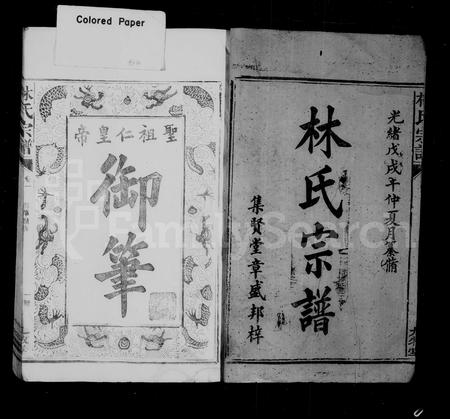 Colored Paper
光緒戊戌年仲夏月纂脩
林氏宗譜
集賢堂章盛邦梓
林氏宗譜
聖祖仁皇帝
御筆
林氏宗譜
FamilySearch